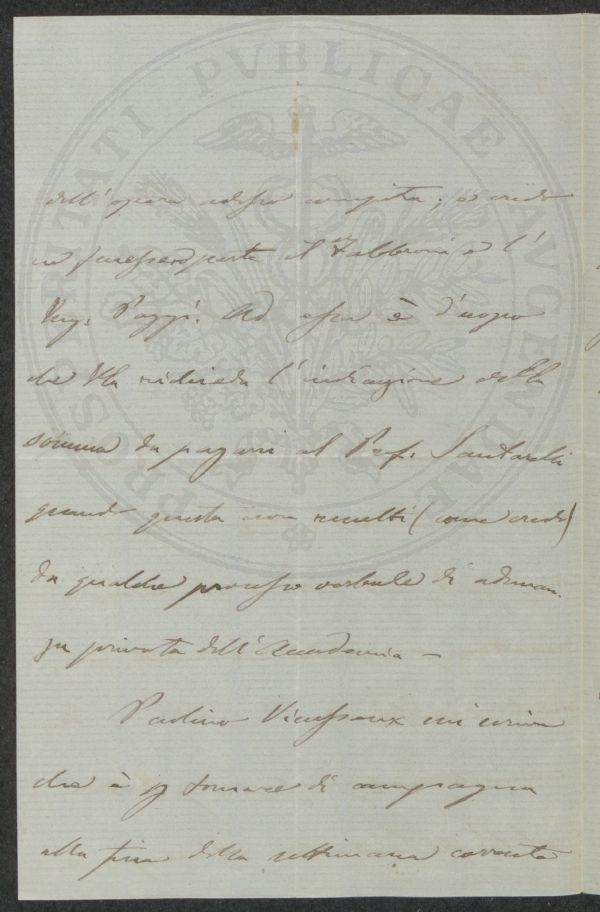 PROSPERITATI PVBLICAE AVGENDAE
dell'opera adesso compita, e credo
ne facesser parte il Fabbroni e l'
Ing. Poggi. Ad essa è d'uopo
che Ella richieda l'indicazione della
somma da pagarsi al Prof. Santarelli
quando questa non resulti (come credo)
da qualche processo verbale di adunan-
za privata dell'Accademia —
Paolino Vieusseux mi scrive
che è p tornare di campagna
alla fine della settimana corrente